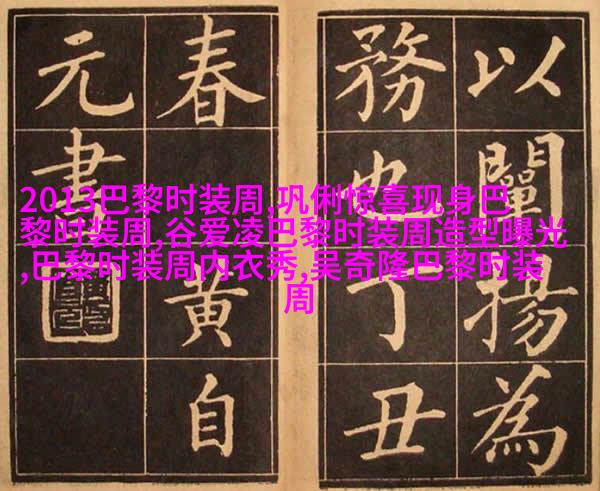 以闡揚為
務也丁丑
春 黄自
元書
2013巴黎时装周,巩俐惊喜现身巴
黎时装周,谷爱凌巴黎时装周造型曝光
,巴黎时装周内衣秀,吴奇隆巴黎时装
周